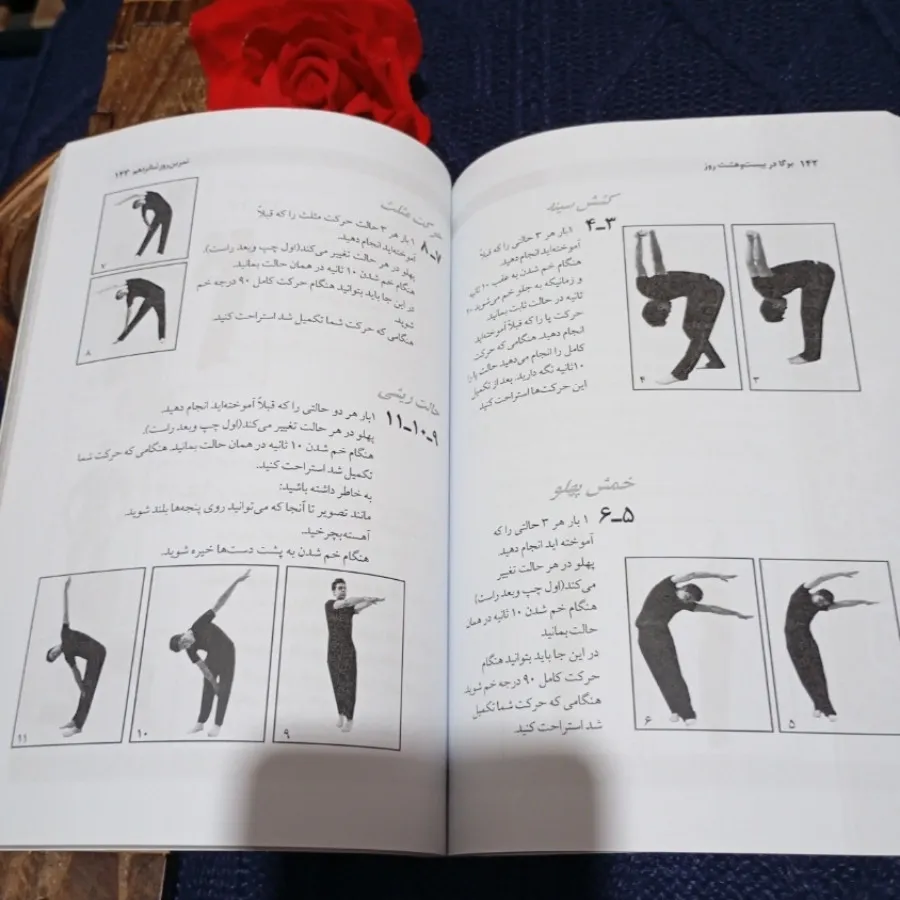 ۱۴۲ یوگا در بیست‌و‌هشت روز
کشش سینه
۳ـ۴
۱بار هر ۳ حالتی را که قبلاً
آموخته‌اید انجام دهید.
هنگام خم شدن به عقب ۱۰ ثانیه
و زمانیکه به جلو خم می‌شوید ۲۰
ثانیه در حالت ثابت بمانید
حرکت پا را که قبلاً آموخته‌اید
انجام دهید. هنگامی که حرکت
کامل را انجام می‌دهید حالت پا را
۱۰ثانیه نگه دارید. بعد از تکمیل
این حرکت‌ها استراحت کنید
۴
۳
خمش پهلو
۵ـ۶
۱ بار هر ۳ حالتی را که
آموخته اید انجام دهید
پهلو در هر حالت تغییر
می‌کند(اول چپ وبعد راست)
هنگام خم شدن ۱۰ ثانیه در همان
حالت بمانید
در این جا باید بتوانید هنگام
حرکت کامل ۹۰ درجه خم شوید
هنگامی که حرکت شما تکمیل
شد استراحت کنید.
۶
۵
تمرین روز شانزدهم ۱۴۳
حرکت مثلث
۷ـ۸
۱ بار هر ۳ حالت حرکت مثلث را که قبلاً
آموخته‌اید انجام دهید.
پهلو در هر حالت تغییر می‌کند(اول چپ وبعد راست).
هنگام خم شدن ۱۰ ثانیه در همان حالت بمانید.
در این جا باید بتوانید هنگام حرکت کامل ۹۰ درجه خم
شوید
هنگامی که حرکت شما تکمیل شد استراحت کنید.
۷
۸
حالت ریشی
۹ـ۱۰ـ۱۱
۱بار هر دو حالتی را که قبلاً آموخته‌اید انجام دهید.
پهلو در هر حالت تغییر می‌کند(اول چپ وبعد راست).
هنگام خم شدن ۱۰ ثانیه در همان حالت بمانید. هنگامی که حرکت شما
تکمیل شد استراحت کنید.
به خاطر داشته باشید:
مانند تصویر تا آنجا که می‌توانید روی پنجه‌ها بلند شوید.
آهسته‌بچرخید.
هنگام خم شدن به پشت دست‌ها خیره شوید.
۹
۱۰
۱۱